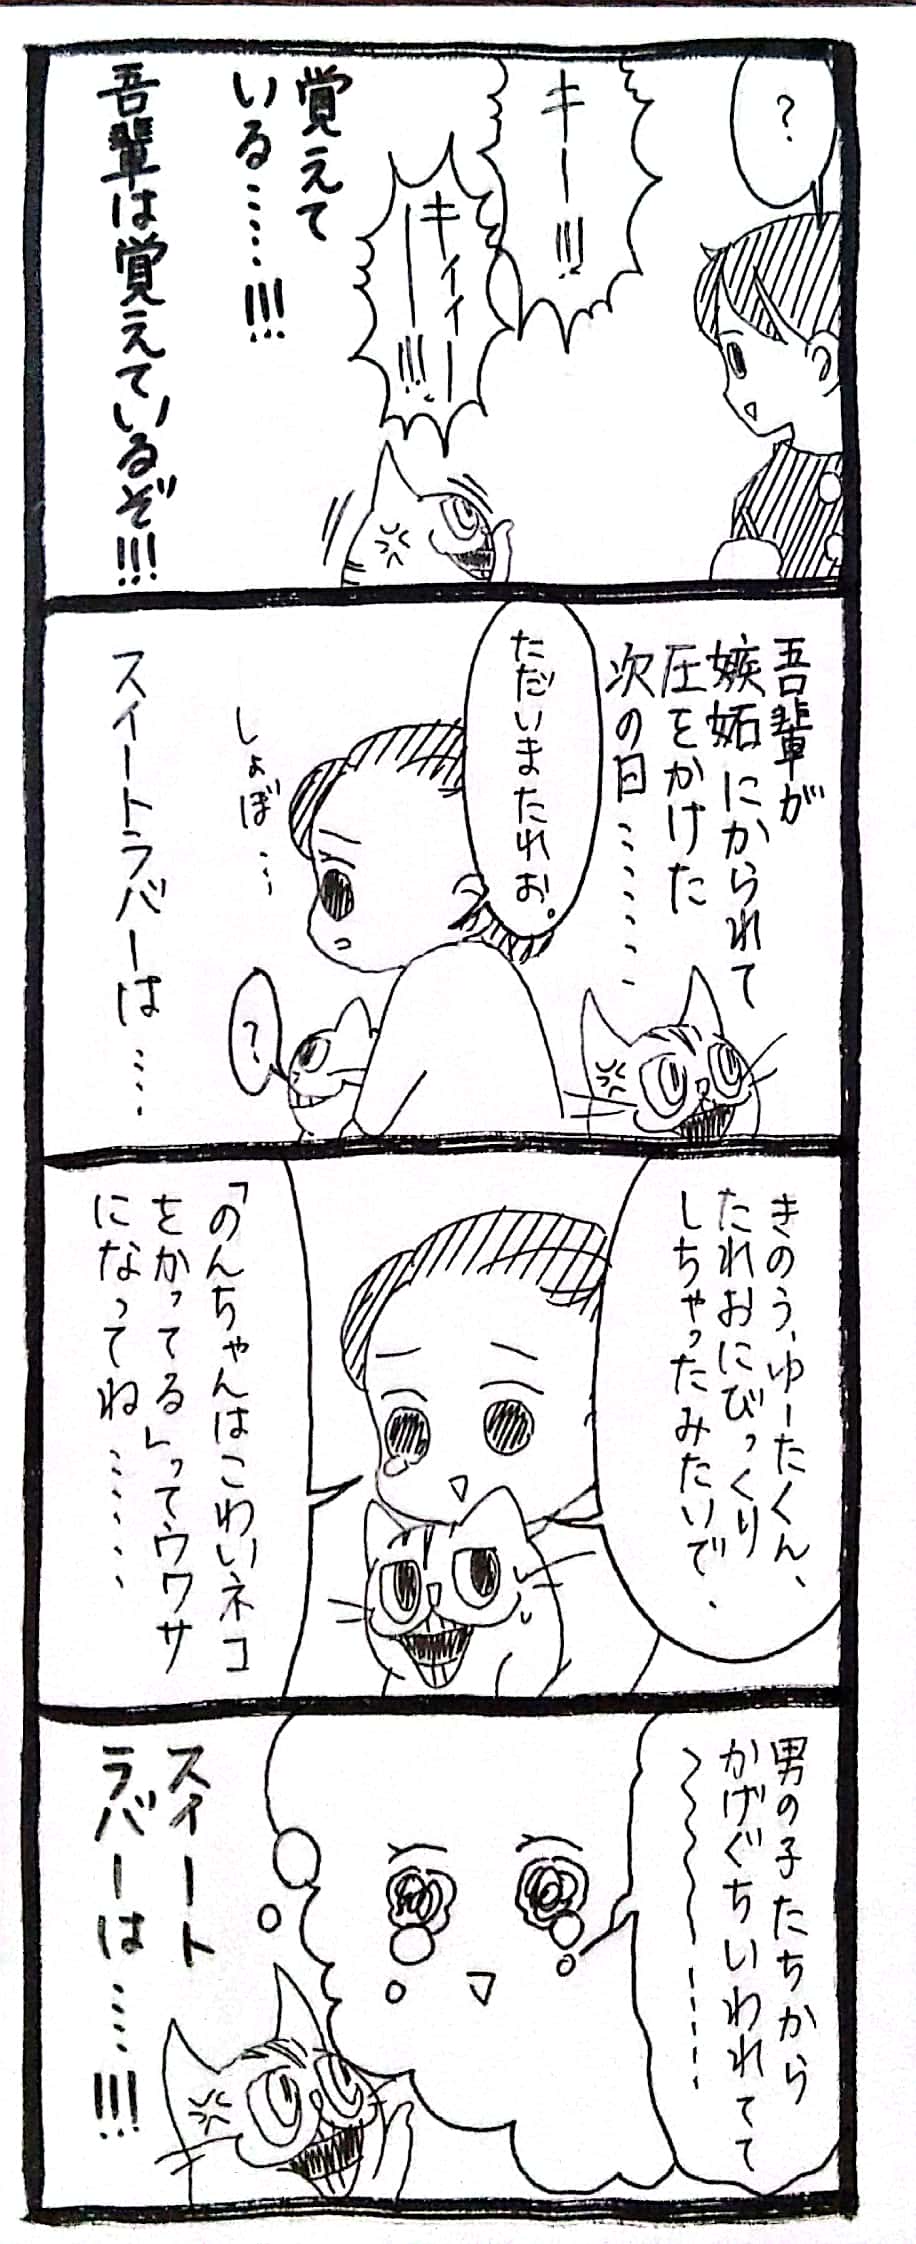 ？
キー!!!
キィィー
ー!!!
覚えて
いる……!!!
吾輩は覚えているぞ!!!
吾輩が
嫉妬にかられて
圧をかけた
次の日……
ただいまたれお。
しょぼ…
？
スイートラバーは…
きのう、ゆーたくん、
たれおにびっくり
しちゃったみたいで、
「のんちゃんはこわいネコ
をかってる」ってウワサ
になってね……
男の子たちから
かげぐちいわれてて
〜〜〜〜……
スイート
ラバーは…!!!